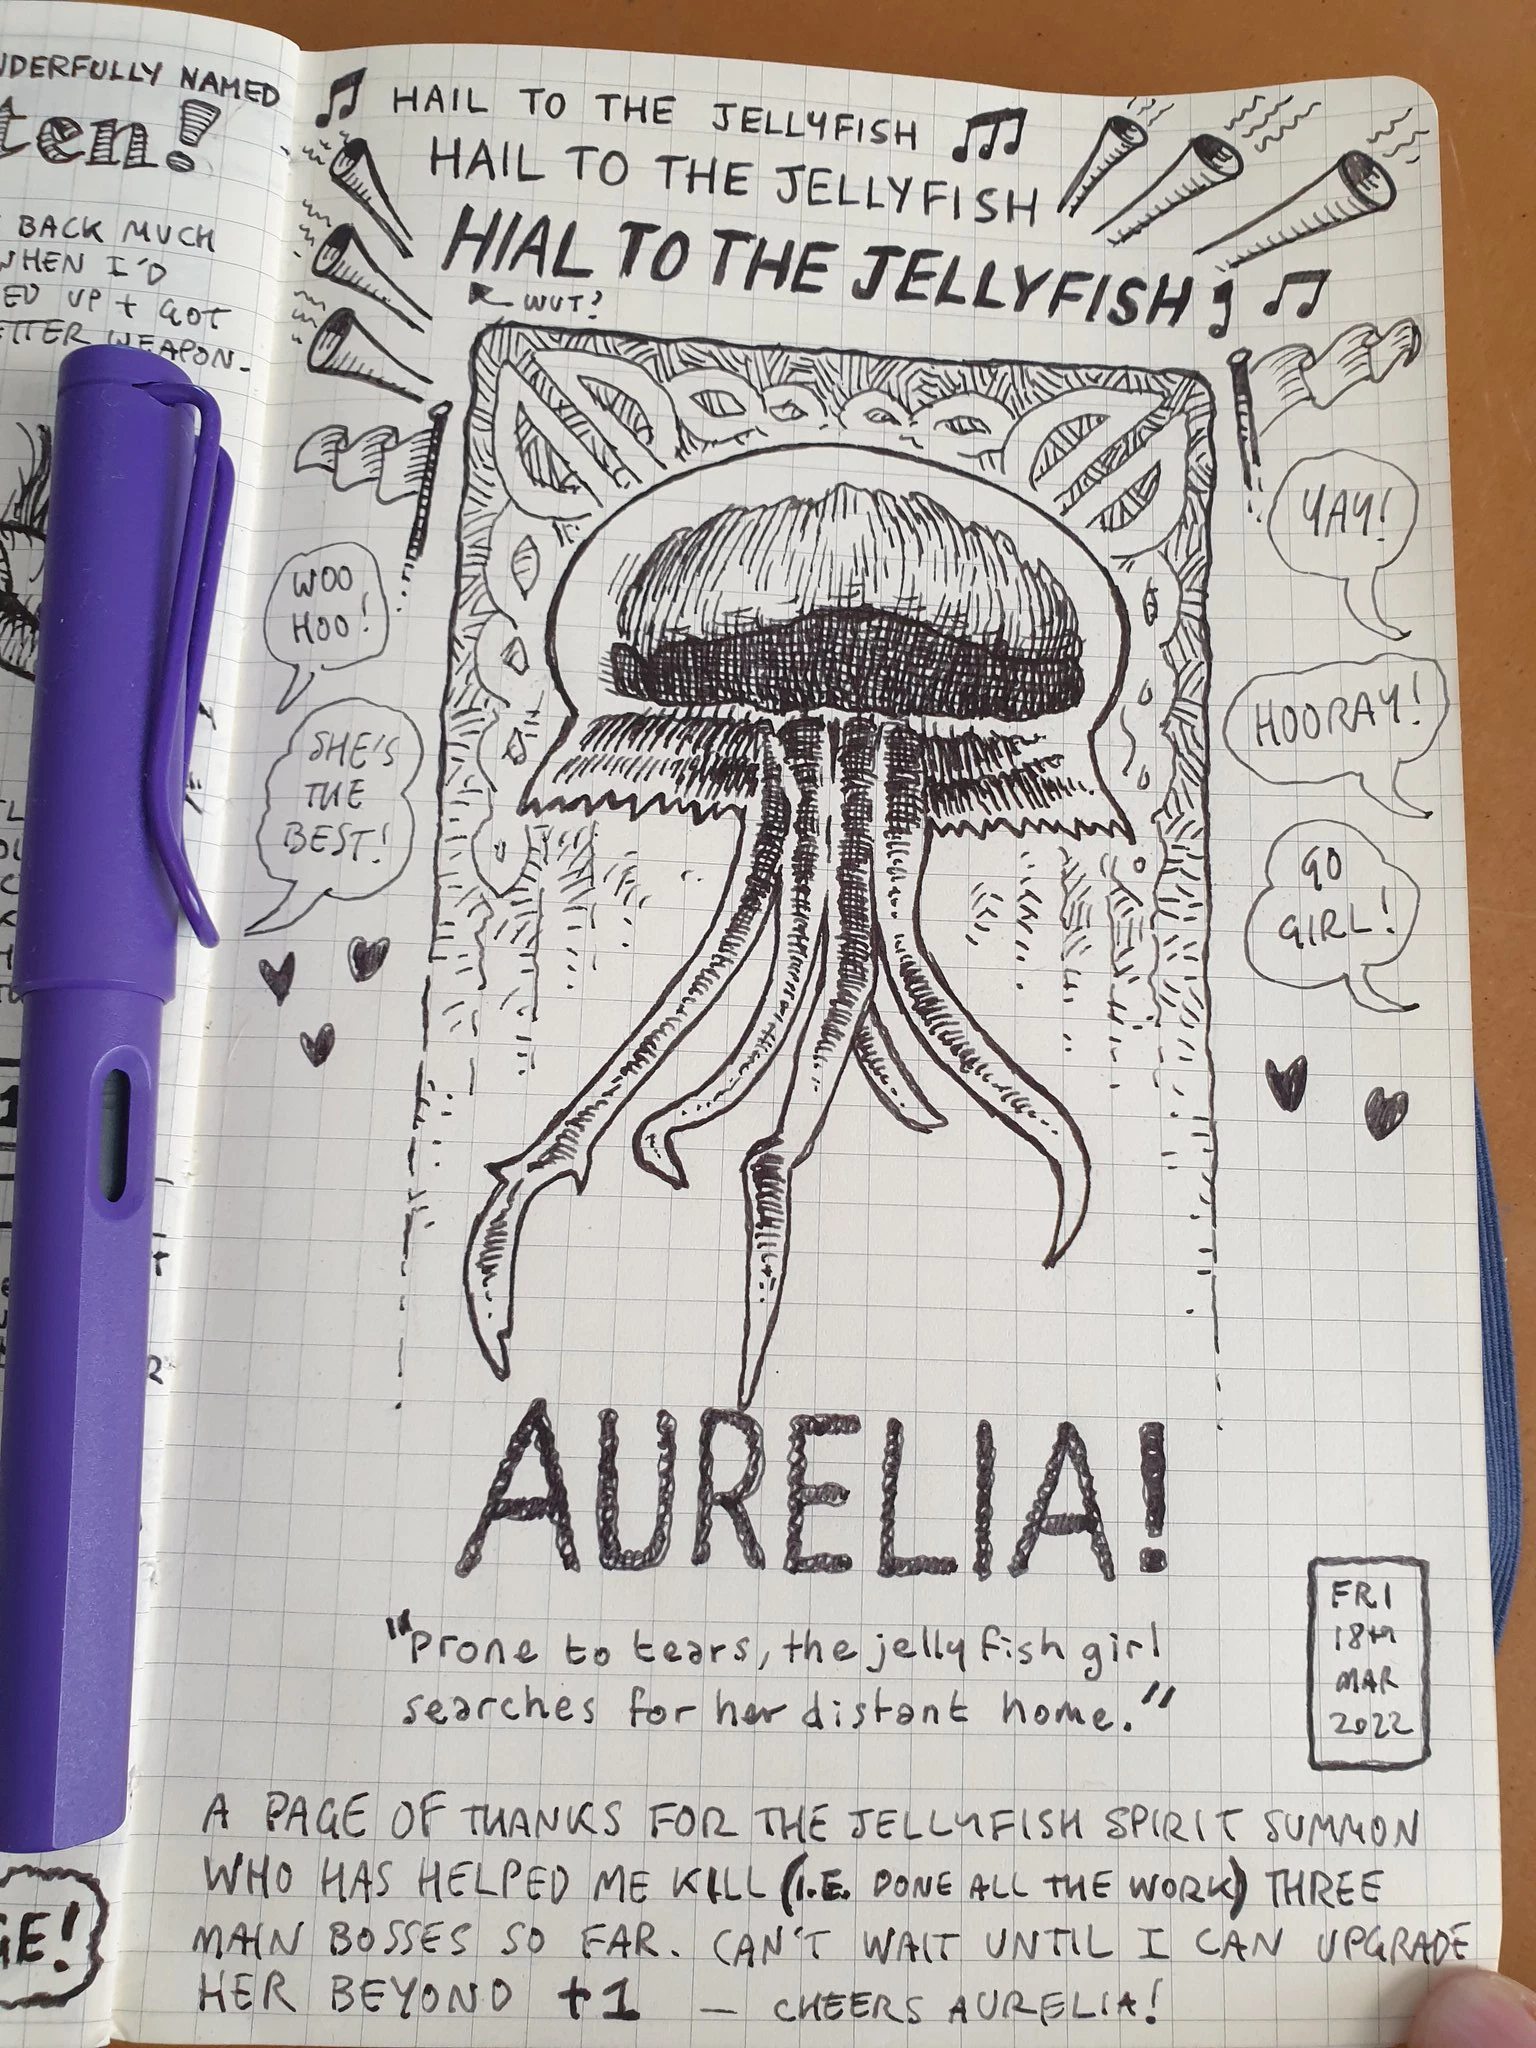 NDERFULLY NAMED
ten!
BACK MUCH
WHEN I'D
ED UP + GOT
ETTER WEAPON.
GE!
HAIL TO THE JELLYFISH
HAIL TO THE JELLYFISH
HIAL TO THE JELLYFISH
WUT?
WOO
HOO!
SHE'S
THE
BEST!
YAY!
HOORAY!
GO
GIRL!
AURELIA!
"Prone to tears, the jellyfish girl
searches for her distant home."
FRI
18TH
MAR
2022
A PAGE OF THANKS FOR THE JELLYFISH SPIRIT SUMMON
WHO HAS HELPED ME KILL (I.E. DONE ALL THE WORK) THREE
MAIN BOSSES SO FAR. CAN'T WAIT UNTIL I CAN UPGRADE
HER BEYOND +1 – CHEERS AURELIA!